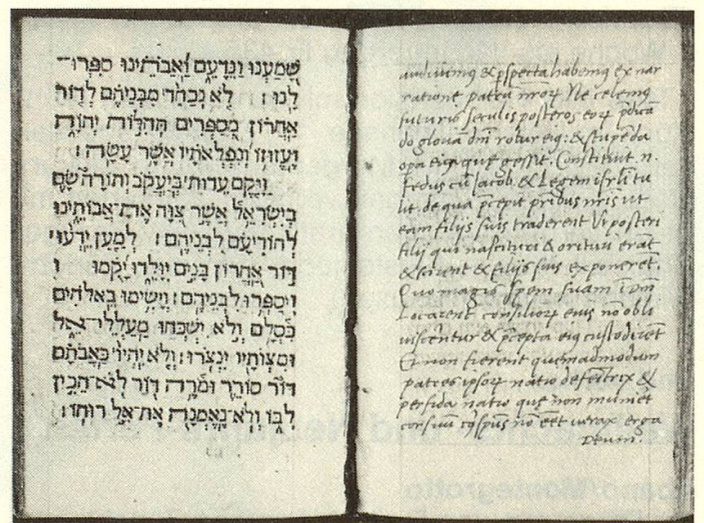 שָׁמַעְנוּ וַנֵּדָעֵם וַאֲבֹתֵינוּ סִפְּרוּ־
לָנוּ׃ לֹא נְכַחֵד מִבְּנֵיהֶם לְדוֹר
אַחֲרוֹן מְסַפְּרִים תְּהִלּוֹת יְהוָה
וֶעֱזוּזוֹ וְנִפְלְאֹתָיו אֲשֶׁר עָשָׂה׃
וַיָּקֶם עֵדוּת בְּיַעֲקֹב וְתוֹרָה שָׂם
בְּיִשְׂרָאֵל אֲשֶׁר צִוָּה אֶת־אֲבוֹתֵינוּ
לְהוֹדִיעָם לִבְנֵיהֶם׃ לְמַעַן יֵדְעוּ
דּוֹר אַחֲרוֹן בָּנִים יִוָּלֵדוּ יָקֻמוּ
וִיסַפְּרוּ לִבְנֵיהֶם׃ וְיָשִׂימוּ בֵאלֹהִים
כִּסְלָם וְלֹא יִשְׁכְּחוּ מַעַלְלֵי־אֵל
וּמִצְוֹתָיו יִנְצֹרוּ׃ וְלֹא יִהְיוּ כַּאֲבֹתָם
דּוֹר סוֹרֵר וּמֹרֶה דּוֹר לֹא־הֵכִין
לִבּוֹ וְלֹא־נֶאֶמְנָה אֶת־אֵל רוּחוֹ׃
audiuimꝰ & ꝑspecta habemꝰ ex nar
ratione patrũ nr̃oꝝ Ne celemꝰ
futuris seculis posteros eoꝝ p̃dicã
do gloriã dñi
opa eiꝰ que gessit. Constituit .n.
fedus cũ Jacob. & Legem isrl̃i tu
lit. de qua p̃cepit pr̃ibus nr̃is ut
eam filijs suis traderent Vt posteri
filij qui nascituri & orituri erãt
& scirent & filijs suis exponerẽt.
Qui magis spem suam ĩ
Locarent consilioꝝ eius nõ obli
uiscẽrtur & p̃cepta eiꝰ custodirẽt
Et non fierent quemadmodum
patres ipsoꝝ natio defectrix &
perfida natio que non muniẽt
cor suũ spũs nõ eẽt uerax erga
Deum.